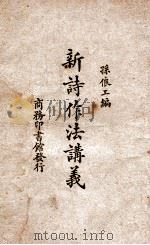 孫俍工編
新詩作法講義
商務印書館發行
www.dutu8.com